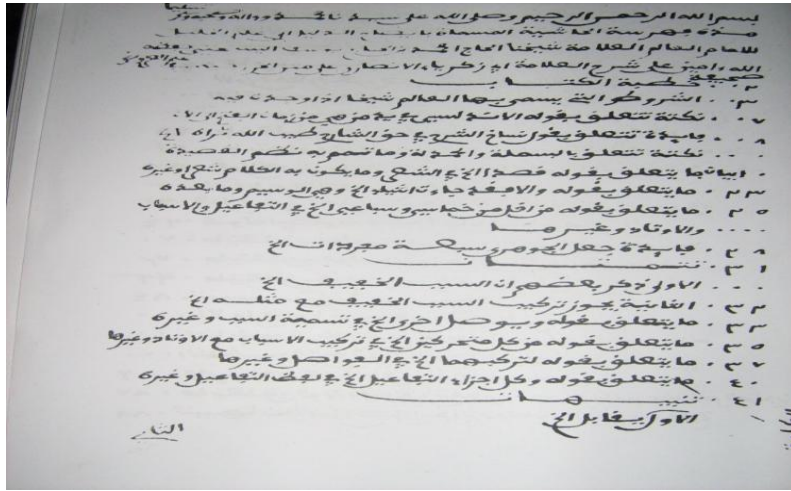 بسم الله الرحمن الرحيم وصلى الله على سيدنا محمد وءاله وصحبه وسلم
هذه فهرسة الحاشية المسماة
للإمام العالم العلامة شيخنا الحاج
الله ءامين على شرح العلامة أبي زكرياء الأنصاري على
صحيفة
٢ . خطبة الكتاب
٣ . . الشروط التي يسمى بها العالم شيخا اذا وجدت فيه
٧ . نكتة تتعلق بقوله
٨ . فايدة تتعلق بقول نساخ الشرح في حق الشارح طيب الله ثراه الخ
. . . نكتة تتعلق بالبسملة والحمدلة وما تسم به نظم القصيدة
ابياتها يتعلق بقوله قصد الخ في الشعر وما يكون به الكلام شعرا وغيره
٢٣ . ما يتعلق بقوله
٢٥ . ما يتعلق بقوله من اقل من خماسي وسباعي الخ في التفاعيل والاسباب
. . . . والاوتاد وغيرها
٢٨ . فايدة جعل الخ
٣١ . تتمات
. . . الاولى ذكر بعضهم ان السبب الخفيف الخ
٣٢ . الثانية يجوز تركيب السبب الخفيف مع مثله الخ
٣٣ . ما يتعلق بقوله الخ في تسمية السبب وغيره
٣٥ . ما يتعلق بقوله من كل متحركين الخ في تركيب الاسباب مع الاوتاد وغيرها
٣٧ . ما يتعلق بقوله لتركبهما الخ في الفواصل وغيرها
٤٠ . ما يتعلق بقوله وكل اجزاء التفاعيل الخ في لفظ التفاعيل وغيره
٤١ . تنبيهات
الاول يقابل الخ
الثاني